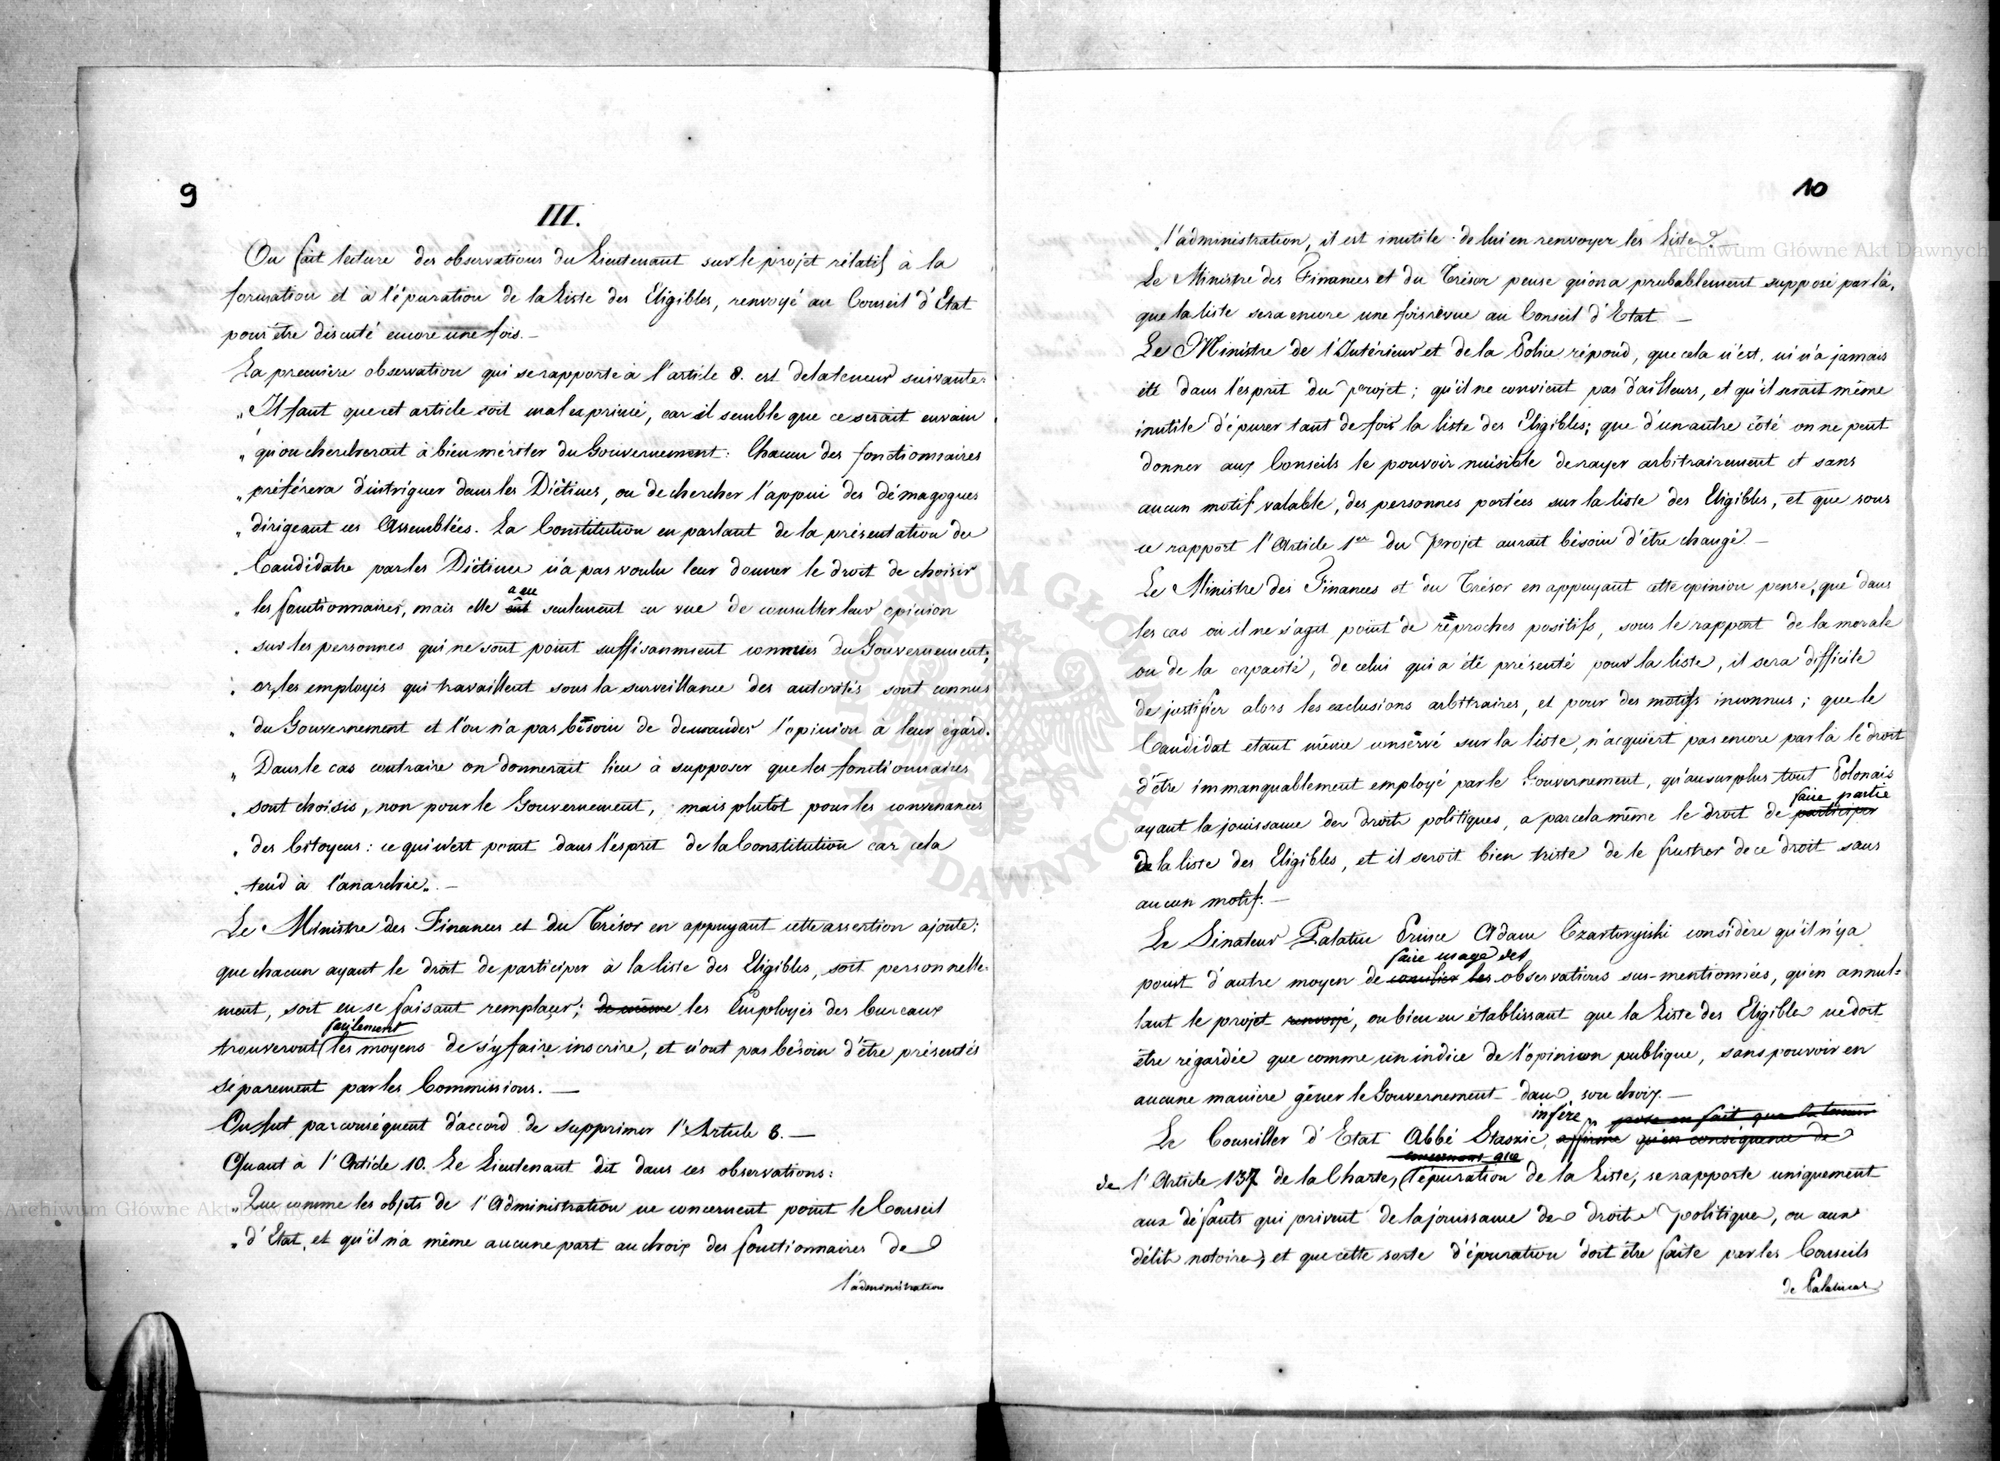 9
III.
On fait lecture des observations du Lieutenant sur le projet rélatif à la
formation et à l'épuration de la Liste des Eligibles, renvoyé au Conseil d'Etat
pour être discuté encore une fois. –
La première observation qui se rapporte à l'article 8. est de la teneur suivante:
„ Il faut que cet article soit mal exprimé, car il semble que ce serait envain
„ qu'on chercherait à bien mériter du Gouvernement: Chacun des fonctionnaires
„ préférera d'intriguer dans les Diétines, ou de chercher l'appui des démagogues
„ dirigeant ces Assemblées. La Constitution en parlant de la présentation des
„ Candidats par les Diétines n'a pas voulu leur donner le droit de choisir
a eu
„ les fonctionnaires, mais elle eût seulement en vue de consulter leur opinion
„ sur les personnes qui ne sont point suffisamment connues du Gouvernement;
„ or, les employés qui travaillent sous la surveillance des autorités sont connus
„ du Gouvernement et l'on n'a pas bésoin de demander l'opinion à leur égard.
„ Dans le cas contraire on donnerait lieu à supposer que les fonctionnaires
„ sont choisis, non pour le Gouvernement, mais plutôt pour les convenances
„ des Citoyens: ce qui n'est point dans l'esprit de la Constitution car cela
„ tend à l'anarchie„. –
Le Ministre des Finances et du Trésor en appuyant cette assertion ajoute:
que chacun ayant le droit de participer à la liste des Eligibles, soit personnelle-
ment, soit en se faisant remplaçer; de même les Employés des bureaux
facilement
trouveront les moyens de s'y faire inscrire, et n'ont pas bésoin d'être présentés
séparement par les Commissions. –
On fut par conséquent d'accord de supprimer l'Article 8. –
Quant à l'Article 10. Le Lieutenant dit dans ces observations:
„ Que comme les objets de l'Administration ne concernent point le Conseil
„ d'Etat, et qu'il n'a même aucune part au choix des fonctionnaires de
l'administration
10
„ l'administration, il est inutile de lui en renvoyer les Listes„. –
Le Ministre des Finances et du Trésor pense qu'on a probablement supposé par là,
que la liste sera encore une fois revue au Conseil d'Etat –
Le Ministre de l'Intérieur et de la Police répond, que cela n'est, ni n'a jamais
été dans l'esprit du projet; qu'il ne convient pas d'ailleurs, et qu'il serait même
inutile d'épurer tant de fois la liste des Eligibles; que d'un autre côté on ne peut
donner aux Conseils le pouvoir nuisible de rayer arbitrairement et sans
aucun motif valable, des personnes portées sur la liste des Eligibles, et que sous
ce rapport l'Article 1er du Projet aurait bésoin d'être changé –
Le Ministre des Finances et du Trésor en appuyant cette opinion pense, que dans
les cas où il ne s'agit point de réproches positifs, sous le rapport de la morale
ou de la capacité, de celui qui a été présenté pour la liste, il sera difficile
de justifier alors les exclusions arbitraires, et pour des motifs inconnus; que le
Candidat etant même conservé sur la liste, n'acquiert pas encore par là le droit
d'être immanquablement employé par le Gouvernement, qu'au surplus tout Polonais
faire partie
ayant la jouissance des droits politiques, a par cela même le droit de participer
de la liste des Eligibles, et il seroit bien triste de le frustrer de ce droit sans
aucun motif. –
Le Sénateur Palatin Prince Adam Czartoryiski considère qu'il n'y a
faire usage des
point d'autre moyen de concilier les observations sus-mentionnées, qu'en annul-
lant le projet renvoyé, ou bien en établissant que la Liste des Eligibles ne doit
être régardée que comme un indice de l'opinion publique, sans pouvoir en
aucune manière gêner le Gouvernement dans son choix. –
infère pose en fait que la teneur
Le Conseiller d'Etat Abbé Staszic, affirme qu'en conséquence de
concernant que
de l'Article 137 de la Charte, l'épuration de la Liste, se rapporte uniquement
aux défauts qui privent de la jouissance des droits politiques, ou aux
délits notoires, et que cette sorte d'épuration doit être faite par les Conseils
de Palatinats
Archiwum Główne Akt Dawnych
Archiwum Główne Akt Dawnych
ARCHIWUM GŁÓWNE AKT DAWNYCH